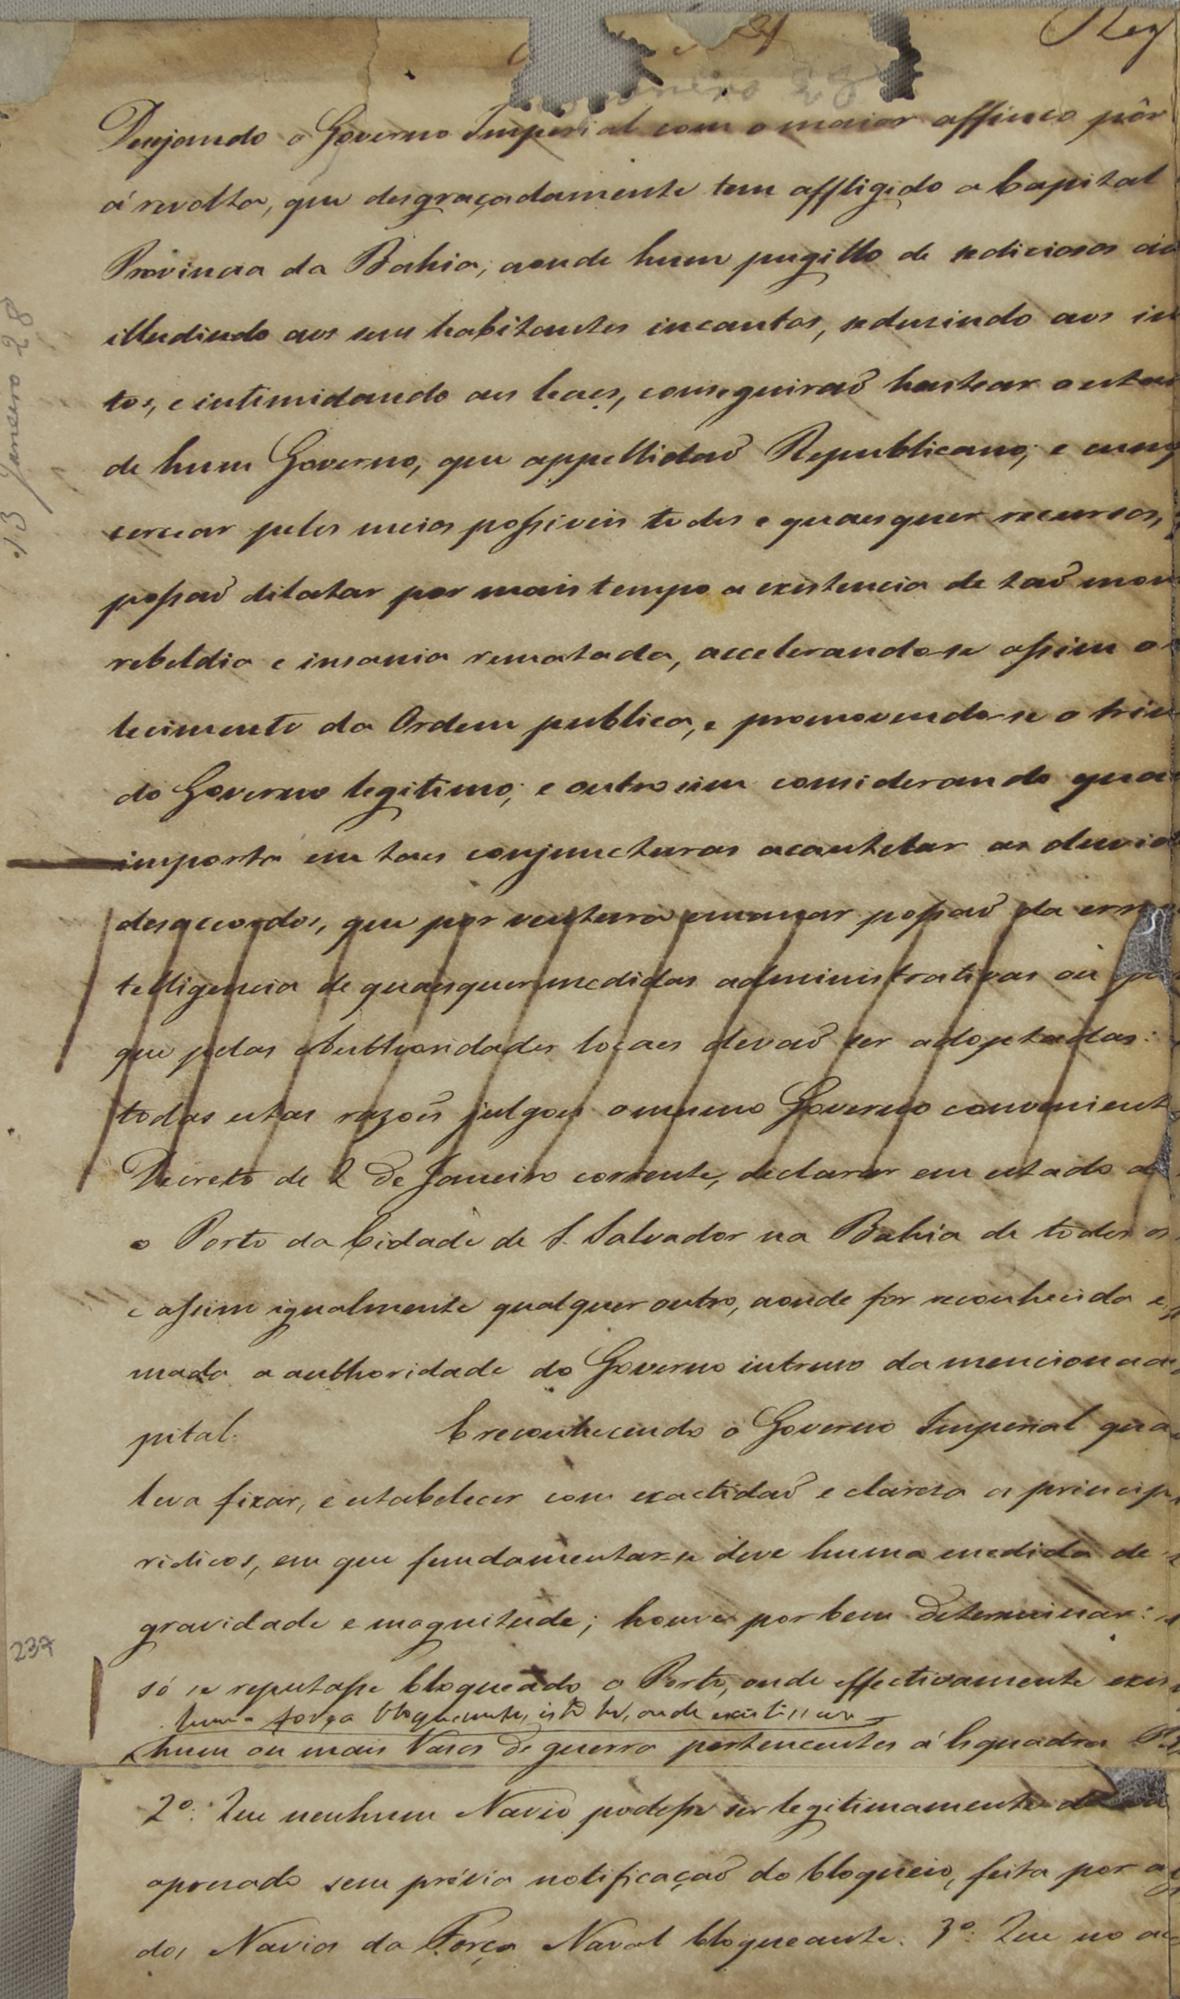 Reg
Janeiro 28
Dezejando o Governo Imperial com o maior affinco pôr
á revolta, que desgraçadamente tem affligido a Capital
Provincia da Bahia, aonde hum pugillo de sediciosos
illudindo aos seus habitantes incautos, seduzindo aos in
tos, e intimidando aos leaes, conseguiraõ hastear o estan
de hum Governo, que appellidaõ Republicano; e cump
cercear pelos meios possiveis todos e quaesquer recursos,
possaõ dilatar por mais tempo a existencia de taõ mon
rebeldia e insania rematada, accelerando-se assim o
lecimento da Ordem publica, e promovendo-se o triu
do Governo legitimo; e outro sim considerando quan
importa em taes conjuncturas acautelar as duvid
desaccordos, que por ventura emanar possaõ da erro
telligencia de quaesquer medidas administrativas ou
que pelas Authoridades locaes devaõ ser adoptadas:
todas estas razoẽs julgou o mesmo Governo convenient
Decreto de 2 de Janeiro corrente, declarar em estado de
o Porto da Cidade de S. Salvador na Bahia de todos os
e assim igualmente qualquer outro, aonde for reconhecida e
mada a authoridade do Governo intruso da mencionada
pital. E reconhecendo o Governo Imperial quan
leva fixar, e estabelecer com exactidaõ e clareza os princip
ridicos, em que fundamentar-se deve huma medida de
gravidade e magnitude; houve por bem determinar:
só se reputasse bloqueado o Porto, onde effectivamente exis
huma força bloqueante, isto he, onde existissem
hum ou mais Vasos de guerra pertencentes á Esquadra
2º: Que nenhum Navio podesse ser legitimamente
aprezado sem prévia notificaçaõ do bloqueio, feita por
dos Navios da Força Naval bloqueante. 3º: Que no
13 Janeiro 28
237